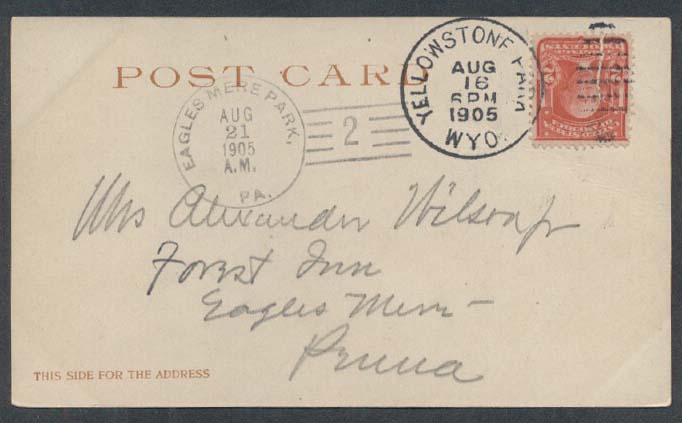 POST CARD
YELLOWSTONE PARK
AUG
16
6 PM
1905
WYO.
EAGLES MERE PARK,
AUG
21
1905
A.M.
PA.
2
Mrs Alexander Wilson Jr
Forest Inn
Eagles Mere
Penna
THIS SIDE FOR THE ADDRESS